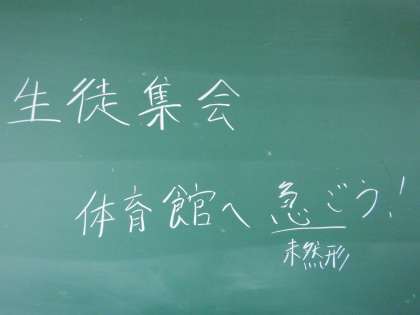 生徒集会
体育館へ急ごう!
未然形